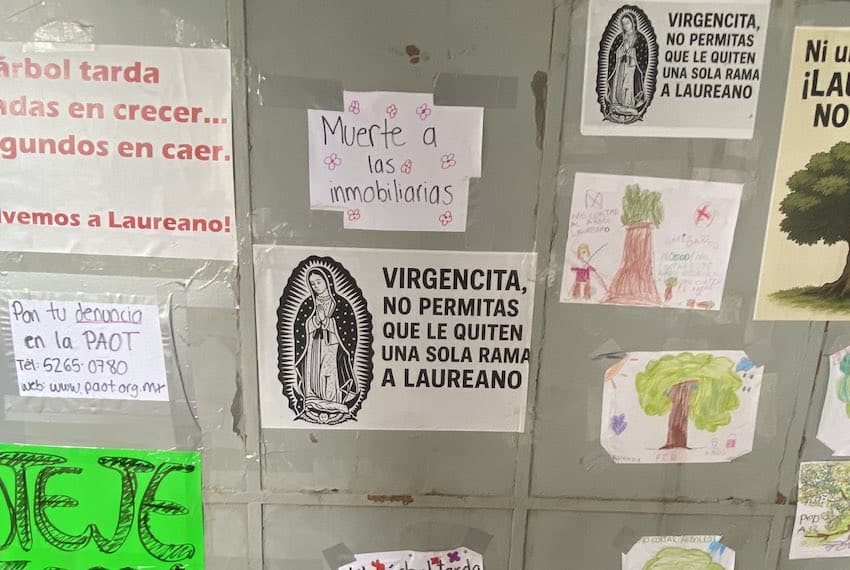 árbol tarda
adas en crecer...
gundos en caer.
lvemos a Laureano!
Muerte a
las
inmobiliarias
VIRGENCITA,
NO PERMITAS
QUE LE QUITEN
UNA SOLA RAMA
A LAUREANO
Ni u
¡LAU
NO
Pon tu denuncia
en la PAOT
Tél: 5265-0780
web: www.paot.org.mx
VIRGENCITA,
NO PERMITAS
QUE LE QUITEN
UNA SOLA RAMA
A LAUREANO
OTEJE
árbol tarda